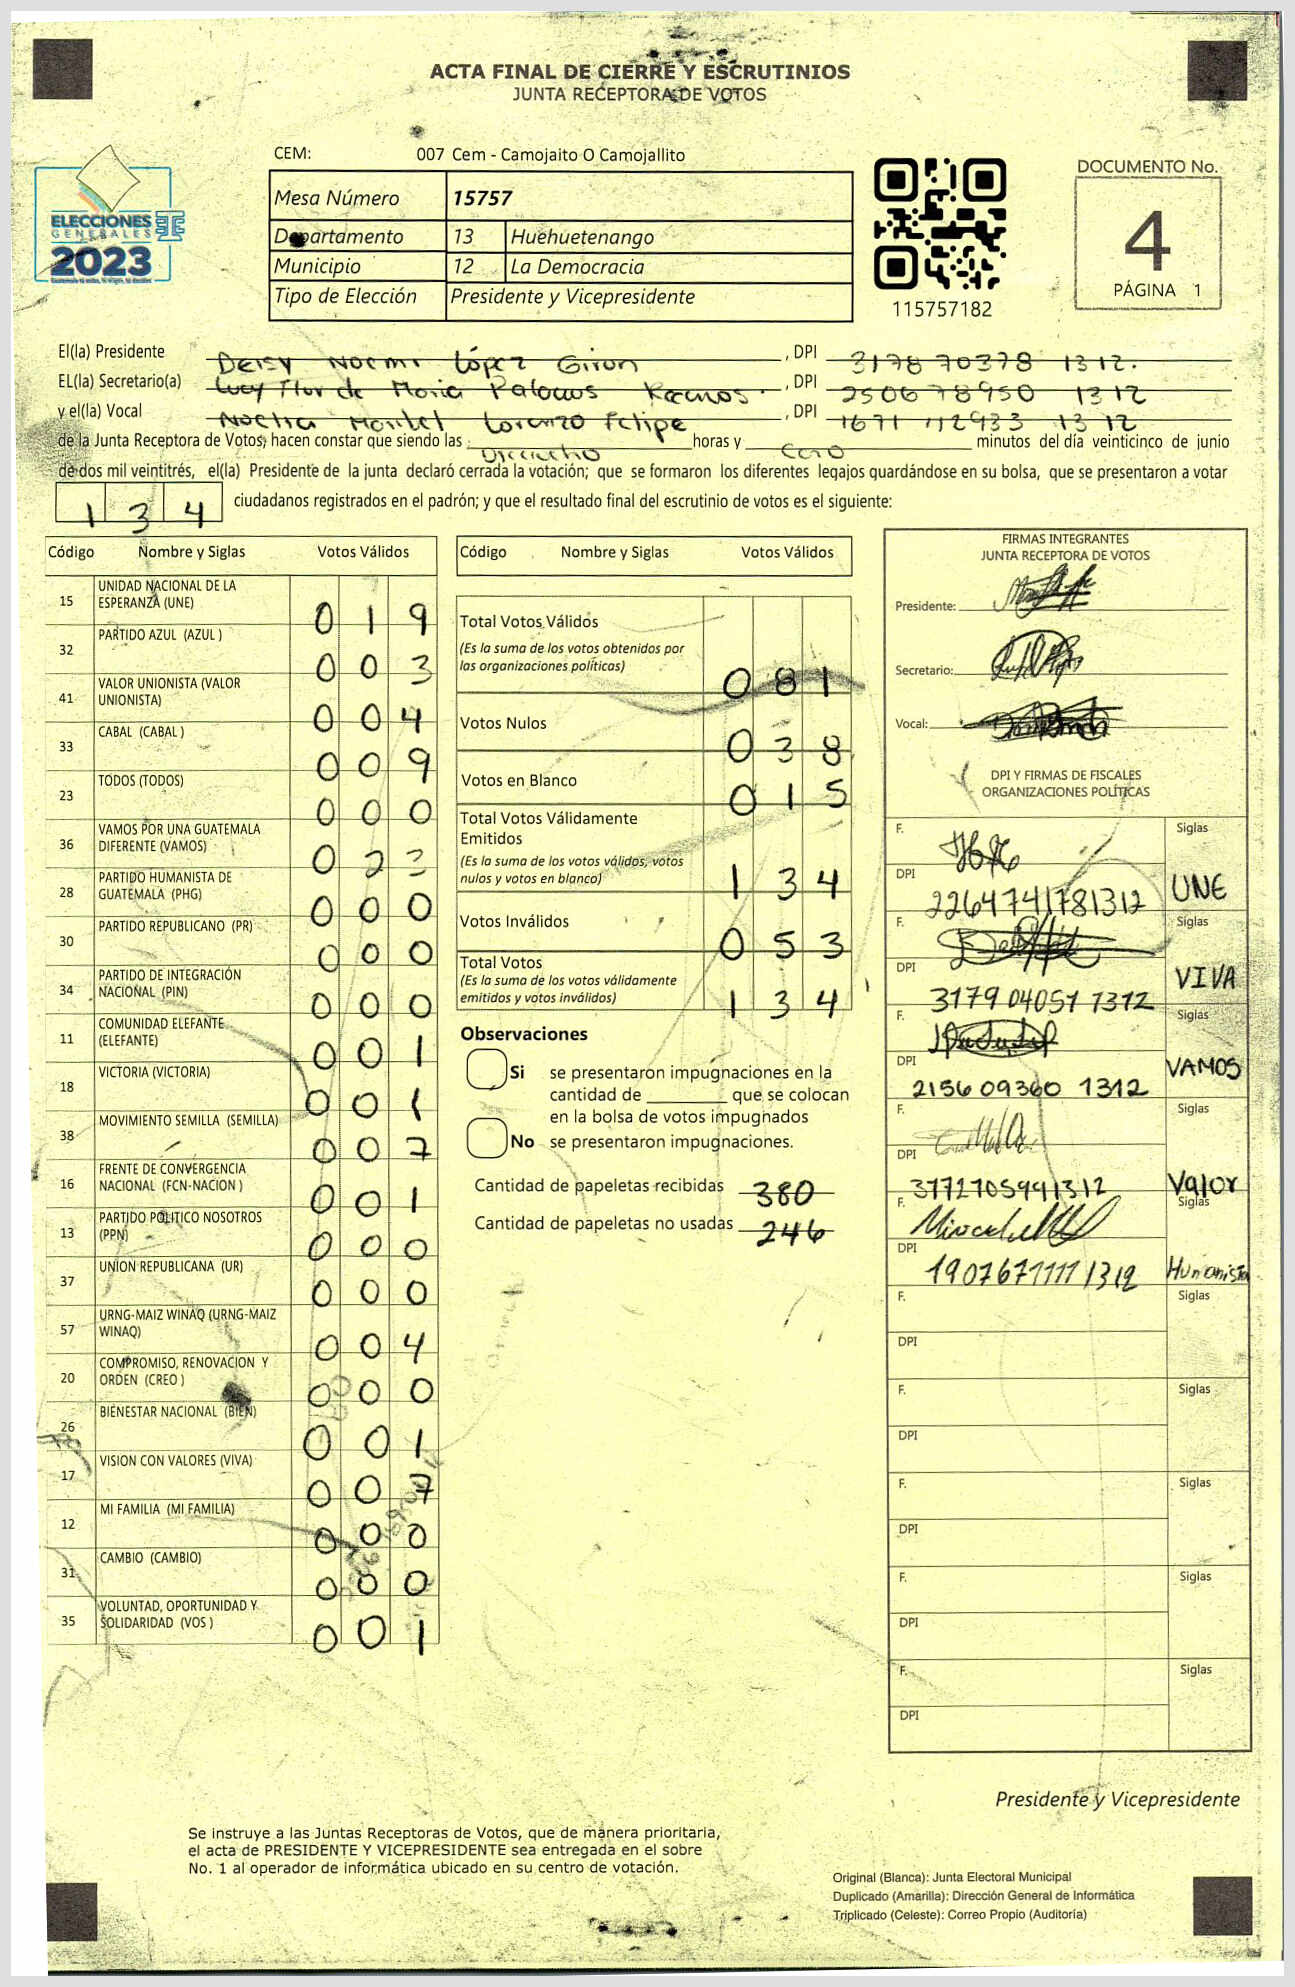 ACTA FINAL DE CIERRE Y ESCRUTINIOS
JUNTA RECEPTORA DE VOTOS
CEM: 007 Cem - Camojaito O Camojallito
ELECCIONES
GENERALES
2023
Mesa Número 15757
Departamento 13 Huehuetenango
Municipio 12 La Democracia
Tipo de Elección Presidente y Vicepresidente
115757182
DOCUMENTO No.
4
PÁGINA 1
El(la) Presidente Deisy Noemi López Giron , DPI 3178 70378 1312.
EL(la) Secretario(a) Lucy Flor de Maria Palacios , DPI 2506 78950 1312
y el(la) Vocal Lorenzo Felipe , DPI 1671 112933 1312
de la Junta Receptora de Votos, hacen constar que siendo las Dieciocho horas y cero minutos del día veinticinco de junio
de dos mil veintitrés, el(la) Presidente de la junta declaró cerrada la votación; que se formaron los diferentes legajos guardándose en su bolsa, que se presentaron a votar
134 ciudadanos registrados en el padrón; y que el resultado final del escrutinio de votos es el siguiente:
Código Nombre y Siglas Votos Válidos
15 UNIDAD NACIONAL DE LA ESPERANZA (UNE) 019
32 PARTIDO AZUL (AZUL ) 003
41 VALOR UNIONISTA (VALOR UNIONISTA) 004
33 CABAL (CABAL ) 009
23 TODOS (TODOS) 000
36 VAMOS POR UNA GUATEMALA DIFERENTE (VAMOS) 023
28 PARTIDO HUMANISTA DE GUATEMALA (PHG) 000
30 PARTIDO REPUBLICANO (PR) 000
34 PARTIDO DE INTEGRACIÓN NACIONAL (PIN) 000
11 COMUNIDAD ELEFANTE (ELEFANTE) 001
18 VICTORIA (VICTORIA) 001
38 MOVIMIENTO SEMILLA (SEMILLA) 007
16 FRENTE DE CONVERGENCIA NACIONAL (FCN-NACION ) 001
13 PARTIDO POLITICO NOSOTROS (PPN) 000
37 UNION REPUBLICANA (UR) 000
57 URNG-MAIZ WINAQ (URNG-MAIZ WINAQ) 004
20 COMPROMISO, RENOVACION Y ORDEN (CREO ) 000
26 BIENESTAR NACIONAL (BIEN) 001
17 VISION CON VALORES (VIVA) 007
12 MI FAMILIA (MI FAMILIA) 000
31 CAMBIO (CAMBIO) 000
35 VOLUNTAD, OPORTUNIDAD Y SOLIDARIDAD (VOS ) 001
Código Nombre y Siglas Votos Válidos
Total Votos Válidos 081
(Es la suma de los votos obtenidos por
las organizaciones políticas)
Votos Nulos 038
Votos en Blanco 015
Total Votos Válidamente
Emitidos
(Es la suma de los votos válidos, votos
nulos y votos en blanco) 134
Votos Inválidos 053
Total Votos
(Es la suma de los votos válidamente
emitidos y votos inválidos) 134
Observaciones
Si se presentaron impugnaciones en la
cantidad de ________ que se colocan
en la bolsa de votos impugnados
No se presentaron impugnaciones.
Cantidad de papeletas recibidas 380
Cantidad de papeletas no usadas 246
FIRMAS INTEGRANTES
JUNTA RECEPTORA DE VOTOS
Presidente:
Secretario:
Vocal:
DPI Y FIRMAS DE FISCALES
ORGANIZACIONES POLÍTICAS
F. Siglas
DPI 2264741781312 UNE
F. Siglas
DPI 3179 04051 1312 VIVA
F. Siglas
DPI 2156 09360 1312 VAMOS
F. Siglas
DPI 3772705991312 Valor
F. Siglas
DPI 1907671111 1312 Humanista
F. Siglas
DPI
F. Siglas
DPI
F. Siglas
DPI
F. Siglas
DPI
F. Siglas
DPI
Presidente y Vicepresidente
Se instruye a las Juntas Receptoras de Votos, que de manera prioritaria,
el acta de PRESIDENTE Y VICEPRESIDENTE sea entregada en el sobre
No. 1 al operador de informática ubicado en su centro de votación.
Original (Blanca): Junta Electoral Municipal
Duplicado (Amarilla): Dirección General de Informática
Triplicado (Celeste): Correo Propio (Auditoría)